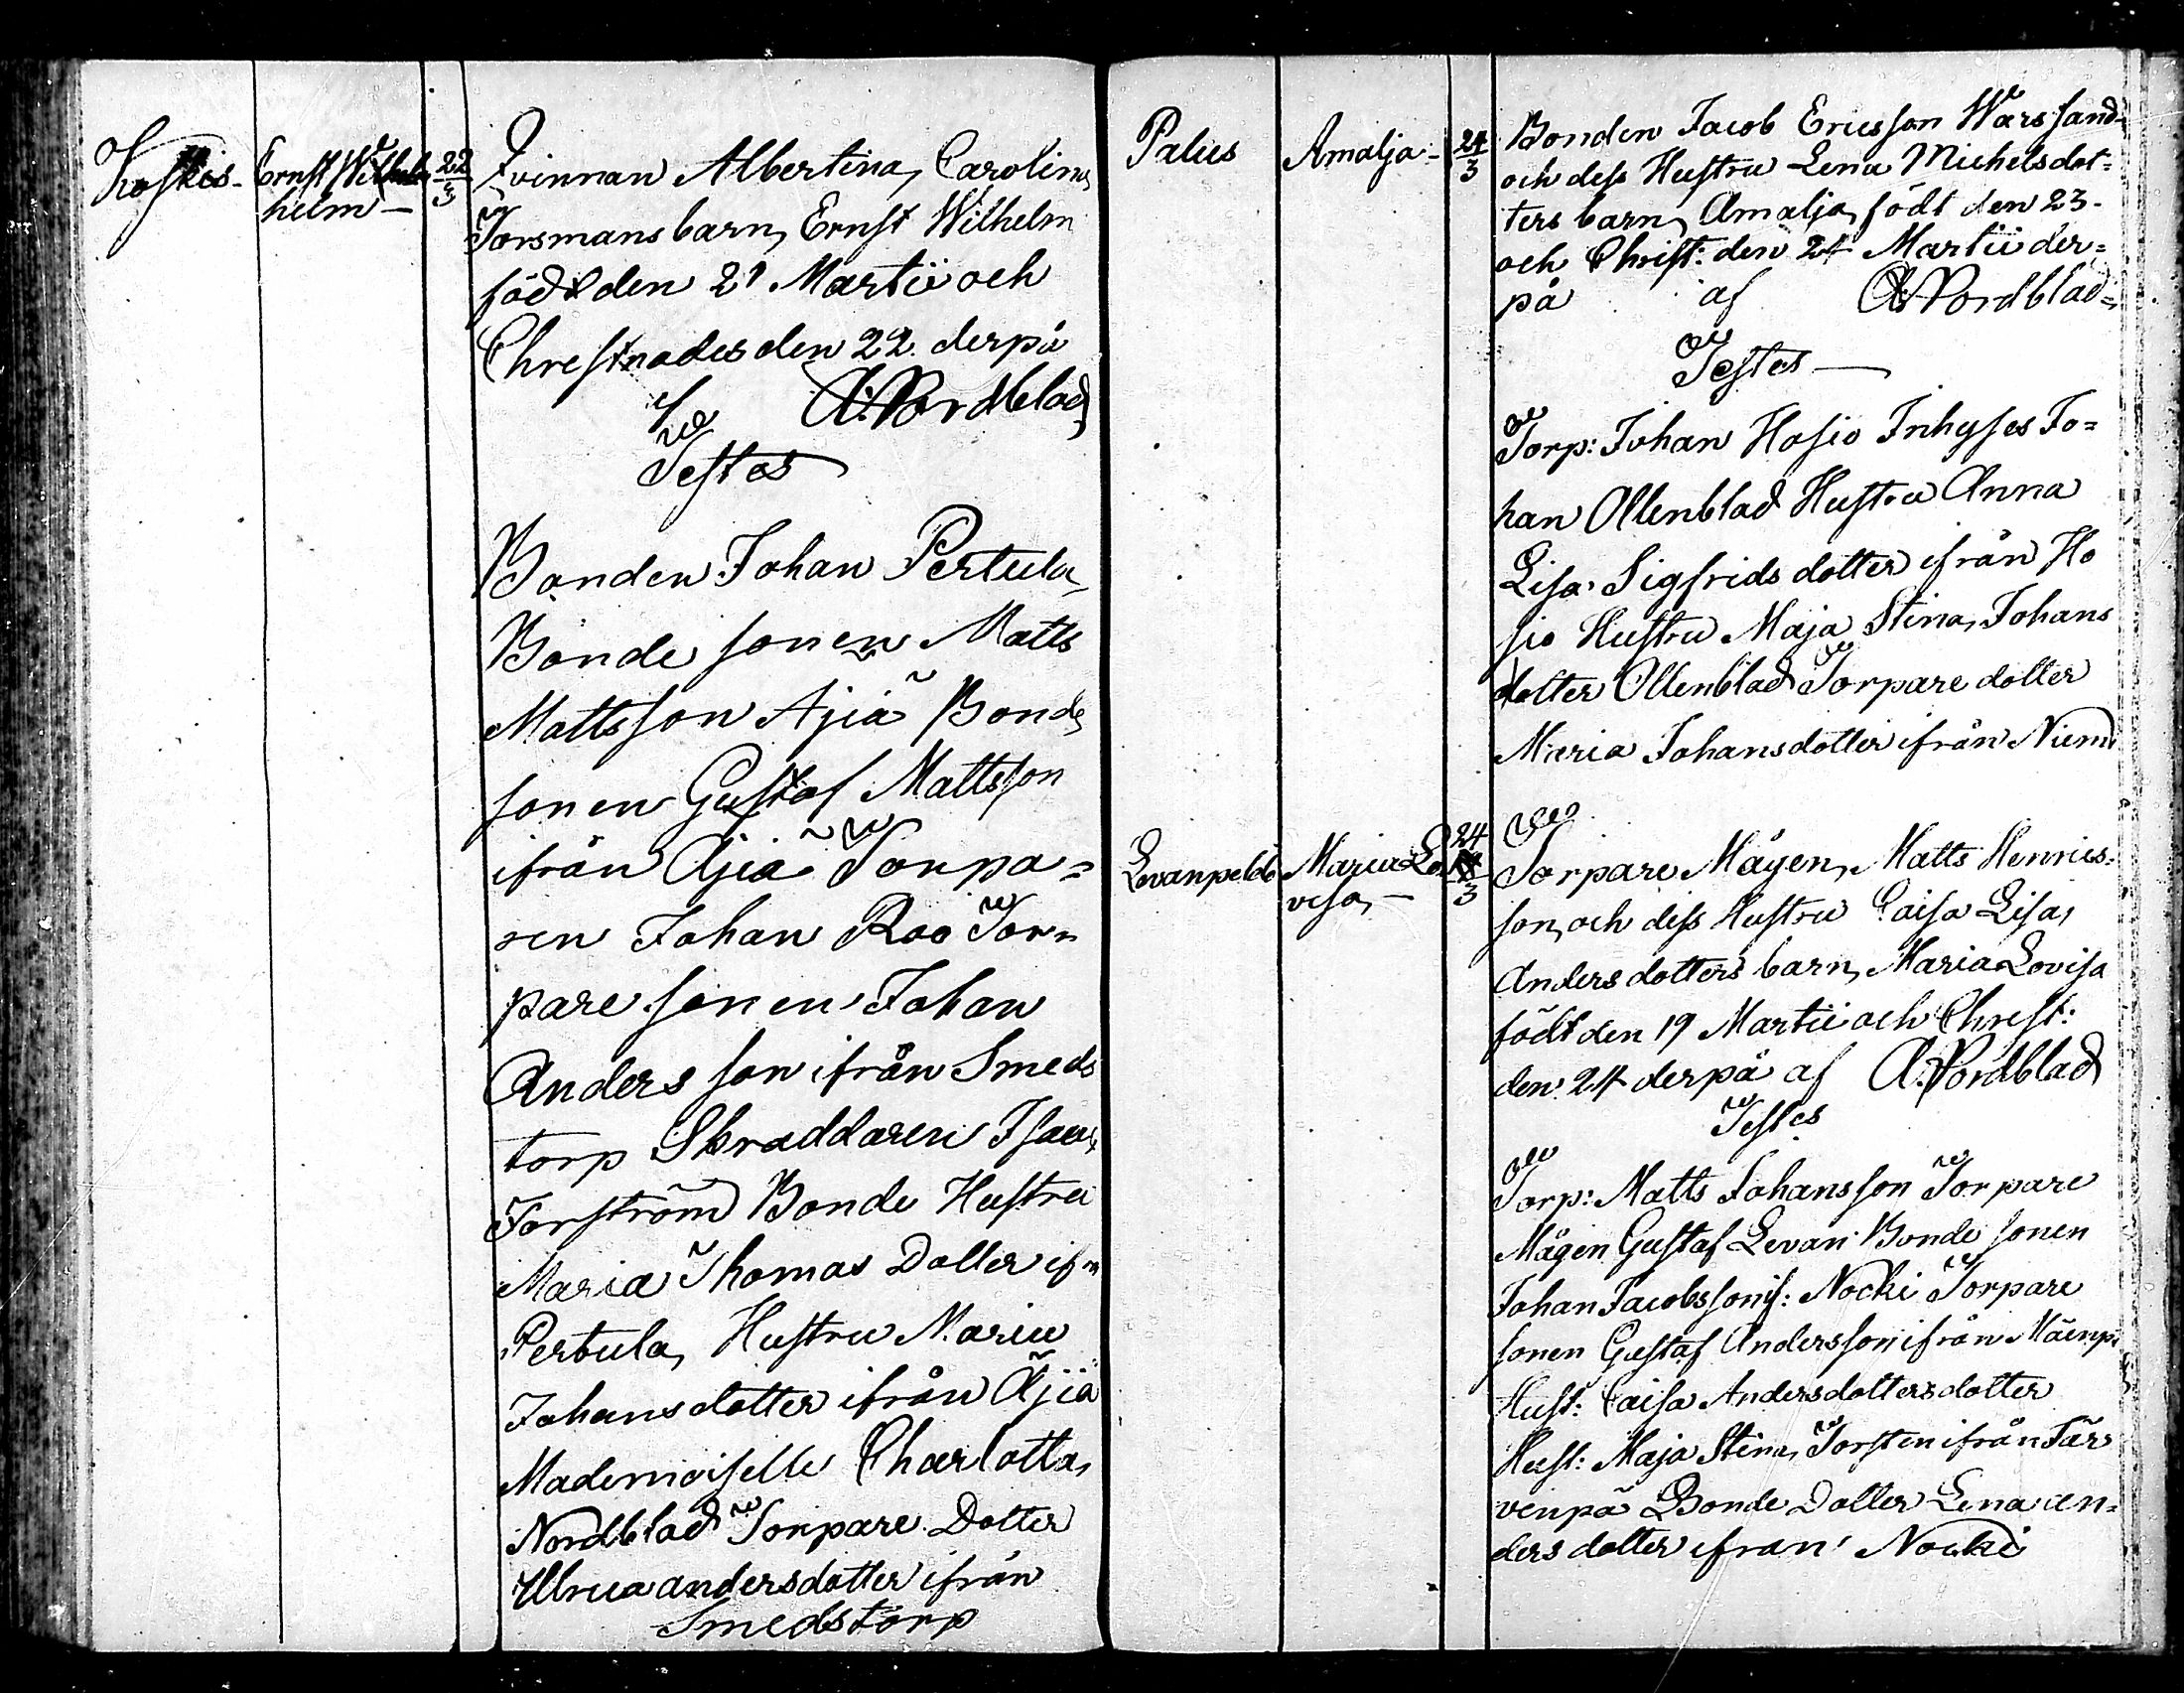 Koskis-
Ernst Wilhelm
helm —
22/3
Qvinnan Albertina, Carolina
Torsmans barn, Ernst Wilhelm
född den 21 Martii och
Christnades den 22 derpå
af A: Nordblad
Testes
Bonden Johan Pertula,
Bonde sonen Matts
Mattsson Äjiä Bonde
sonen Gustaf Mattsson
ifrån Äjiä Torpa=
ren Johan Roo Tor=
pare sonen Johan
Andersson ifrån Smeds
torp Skraddaren Isaac
Forström Bonde Hustru
Maria Thomas Dotter ifrn
Pertula, Hustru Maria
Johansdotter ifrån Äjiä
Mademoiselle Charlotta,
Nordblad Torpare Dotter
Ulrica andersdotter ifrån
Smedstorp
Palus
Amalja-
24/3
Bonden Jacob Ericsson Warssand-
och dess Hustru Lena Michelsdot=
ters barn, Amalja, födt den 23-
och Christ: den 24 Martii der=
på af A: Nordblad=
Testes —
Torp: Johan Hosio Inhyses Jo=
han Ollenblad Hustru Anna
Lisa Sigfrids dotter ifrån Ho
sio Hustru Maja Stina, Johans
dotter Ollenblad Torpare dotter
Maria Johansdotter ifrån Niemi
Levanpeldo
Maria Lo
visa, —
24/3
Torpare Mågen, Matts Henrics=
son, och dess Hustru Caisa Lisa,
Anders dotters barn, Maria Lovisa
födt den 19 Martii och Christ:
den 24 derpå af A: Nordblad
Testes
Torp: Matts Johansson Torpare
Mågen Gustaf Levan Bonde sonen
Johan Jacobsson if: Nocki Torpare
sonen Gustaf Andersson ifrån Mäenpä
Hust: Caisa Andersdottersdotter
Hust: Maja Stina, Torsten ifrån Jär
venpä Bonde Dotter Lena an=
ders dotter ifrån Nocki